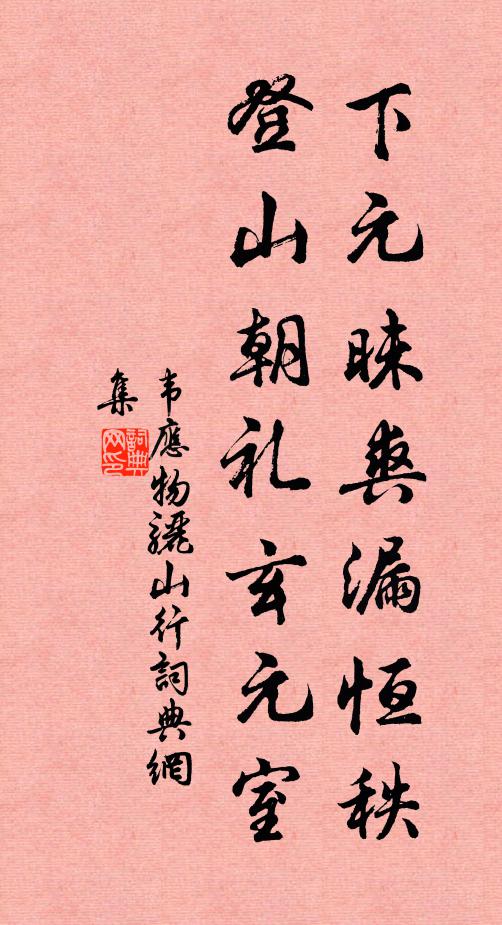 下元昧爽漏恒秩
登山朝礼玄元室
韦應物驪山行詞典網
集
詞典网印